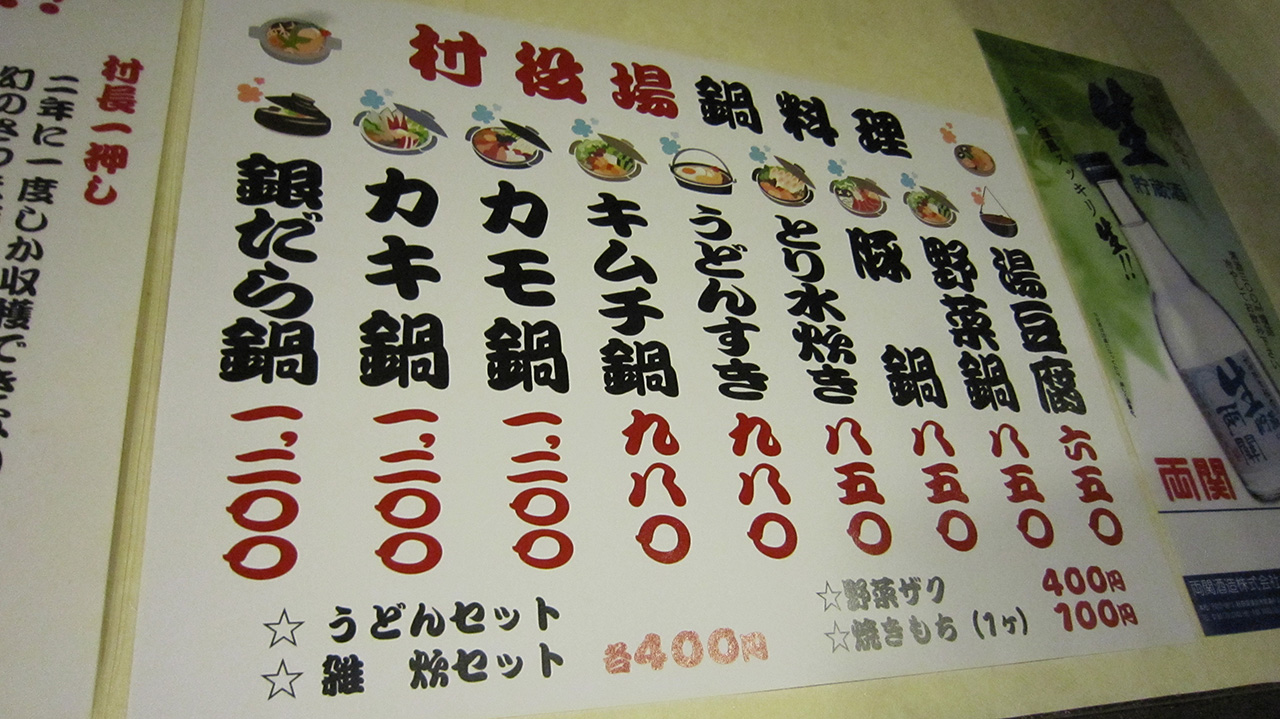 村役場鍋料理
湯豆腐 六五〇
野菜鍋 八五〇
豚鍋 八五〇
とり水炊き 八五〇
うどんすき 九八〇
キムチ鍋 九八〇
カモ鍋 一、二〇〇
カキ鍋 一、二〇〇
銀だら鍋 一、二〇〇
☆ うどんセット
☆ 雑 炊セット
各400円
☆野菜ザク 400円
☆焼きもち(1ヶ) 100円
村長一押し
二年に一度しか収穫でき
幻の
生
貯蔵酒
スッキリ生!!
両関
両関
両関酒造株式会社